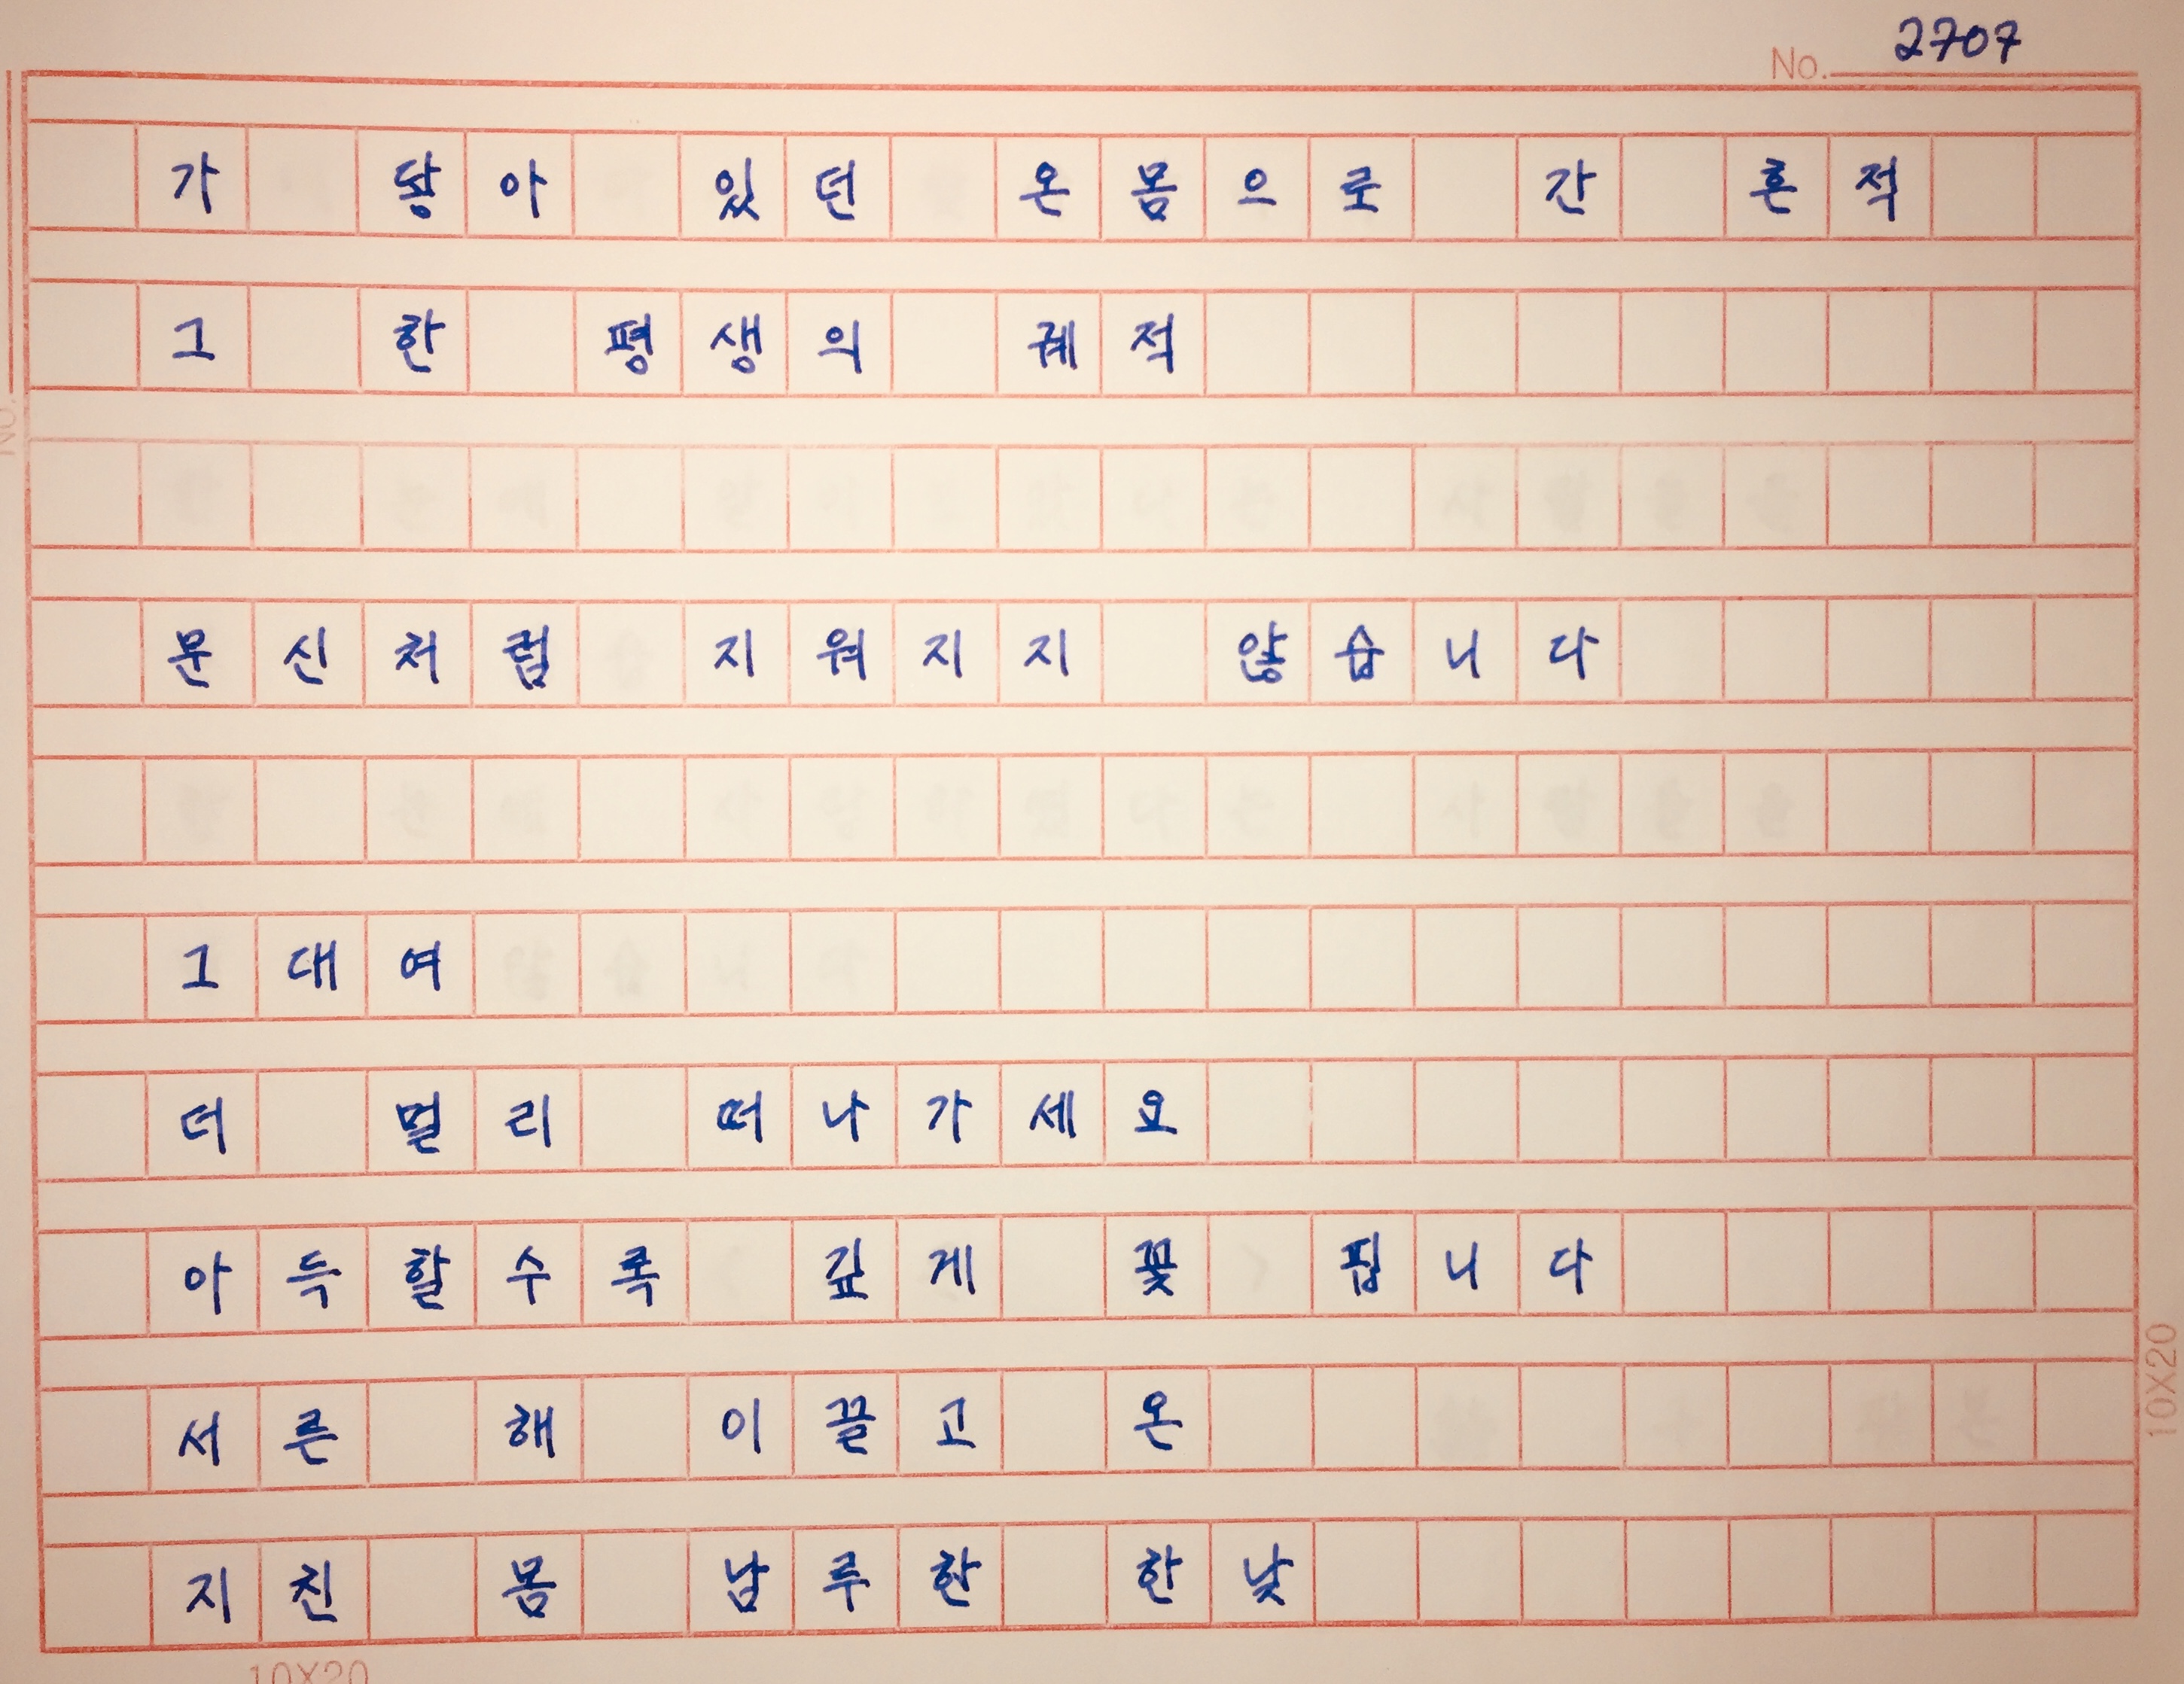 No. 2707
가 닿아 있던 온몸으로 간 흔적
그 한 평생의 궤적
문신처럼 지워지지 않습니다
그대여
더 멀리 떠나가세요
아득할수록 깊게 꽃 핍니다
서른 해 이끌고 온
지친 몸 남루한 한낮
10X20
10X20
No.